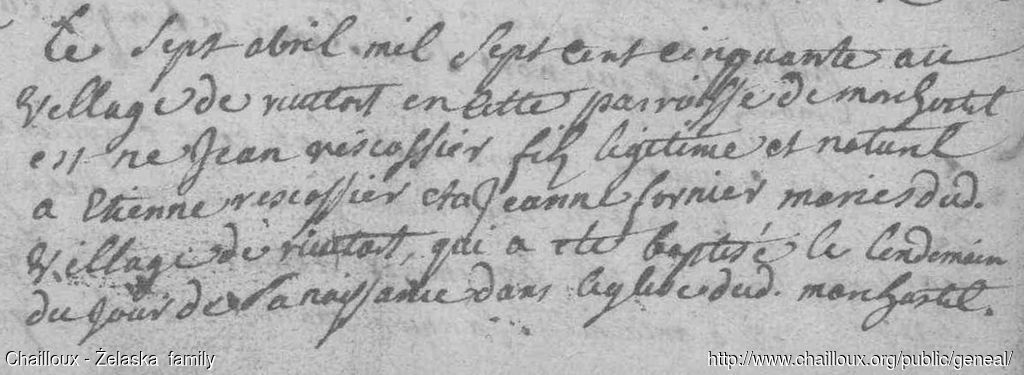 Le sept abril mil sept cent cinquante au
village de riutort en cette parroisse de monhastel
est ne Jean rescossier fils legitime et naturel
a Etienne rescossier et a Jeanne fornier maries dud.
village de riutort, qui a ete baptisé le lendemain
du jour de sa naissance dans leglise dud. monhastel.
Chailloux - Żelaska family
http://www.chailloux.org/public/geneal/